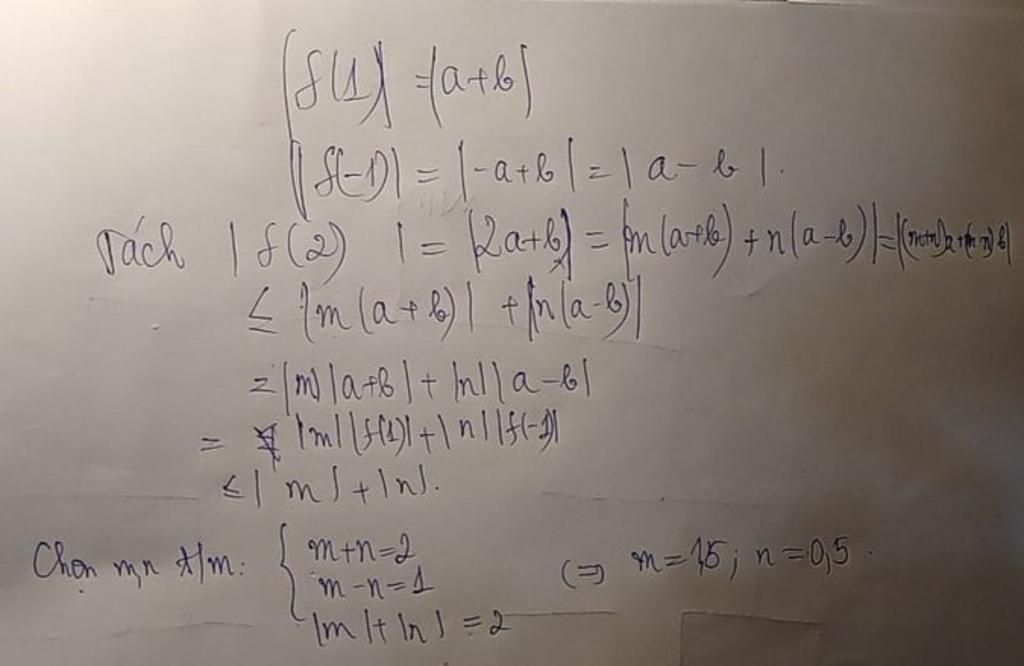 |f(1)| = |a+b|
|f(-1)| = |-a+b| = |a-b|.
Tách |f(2)| = |2a+b| = |m(a+b)+n(a-b)| = |(m+n)a+(m-n)b|
≤ |m(a+b)| + |n(a-b)|
= |m||a+b| + |n||a-b|
= |m||f(1)| + |n||f(-1)|
≤ |m| + |n|.
Chọn m,n t/m: { m+n=2
m-n=1 (=) m=1,5; n=0,5.
|m|+|n| = 2